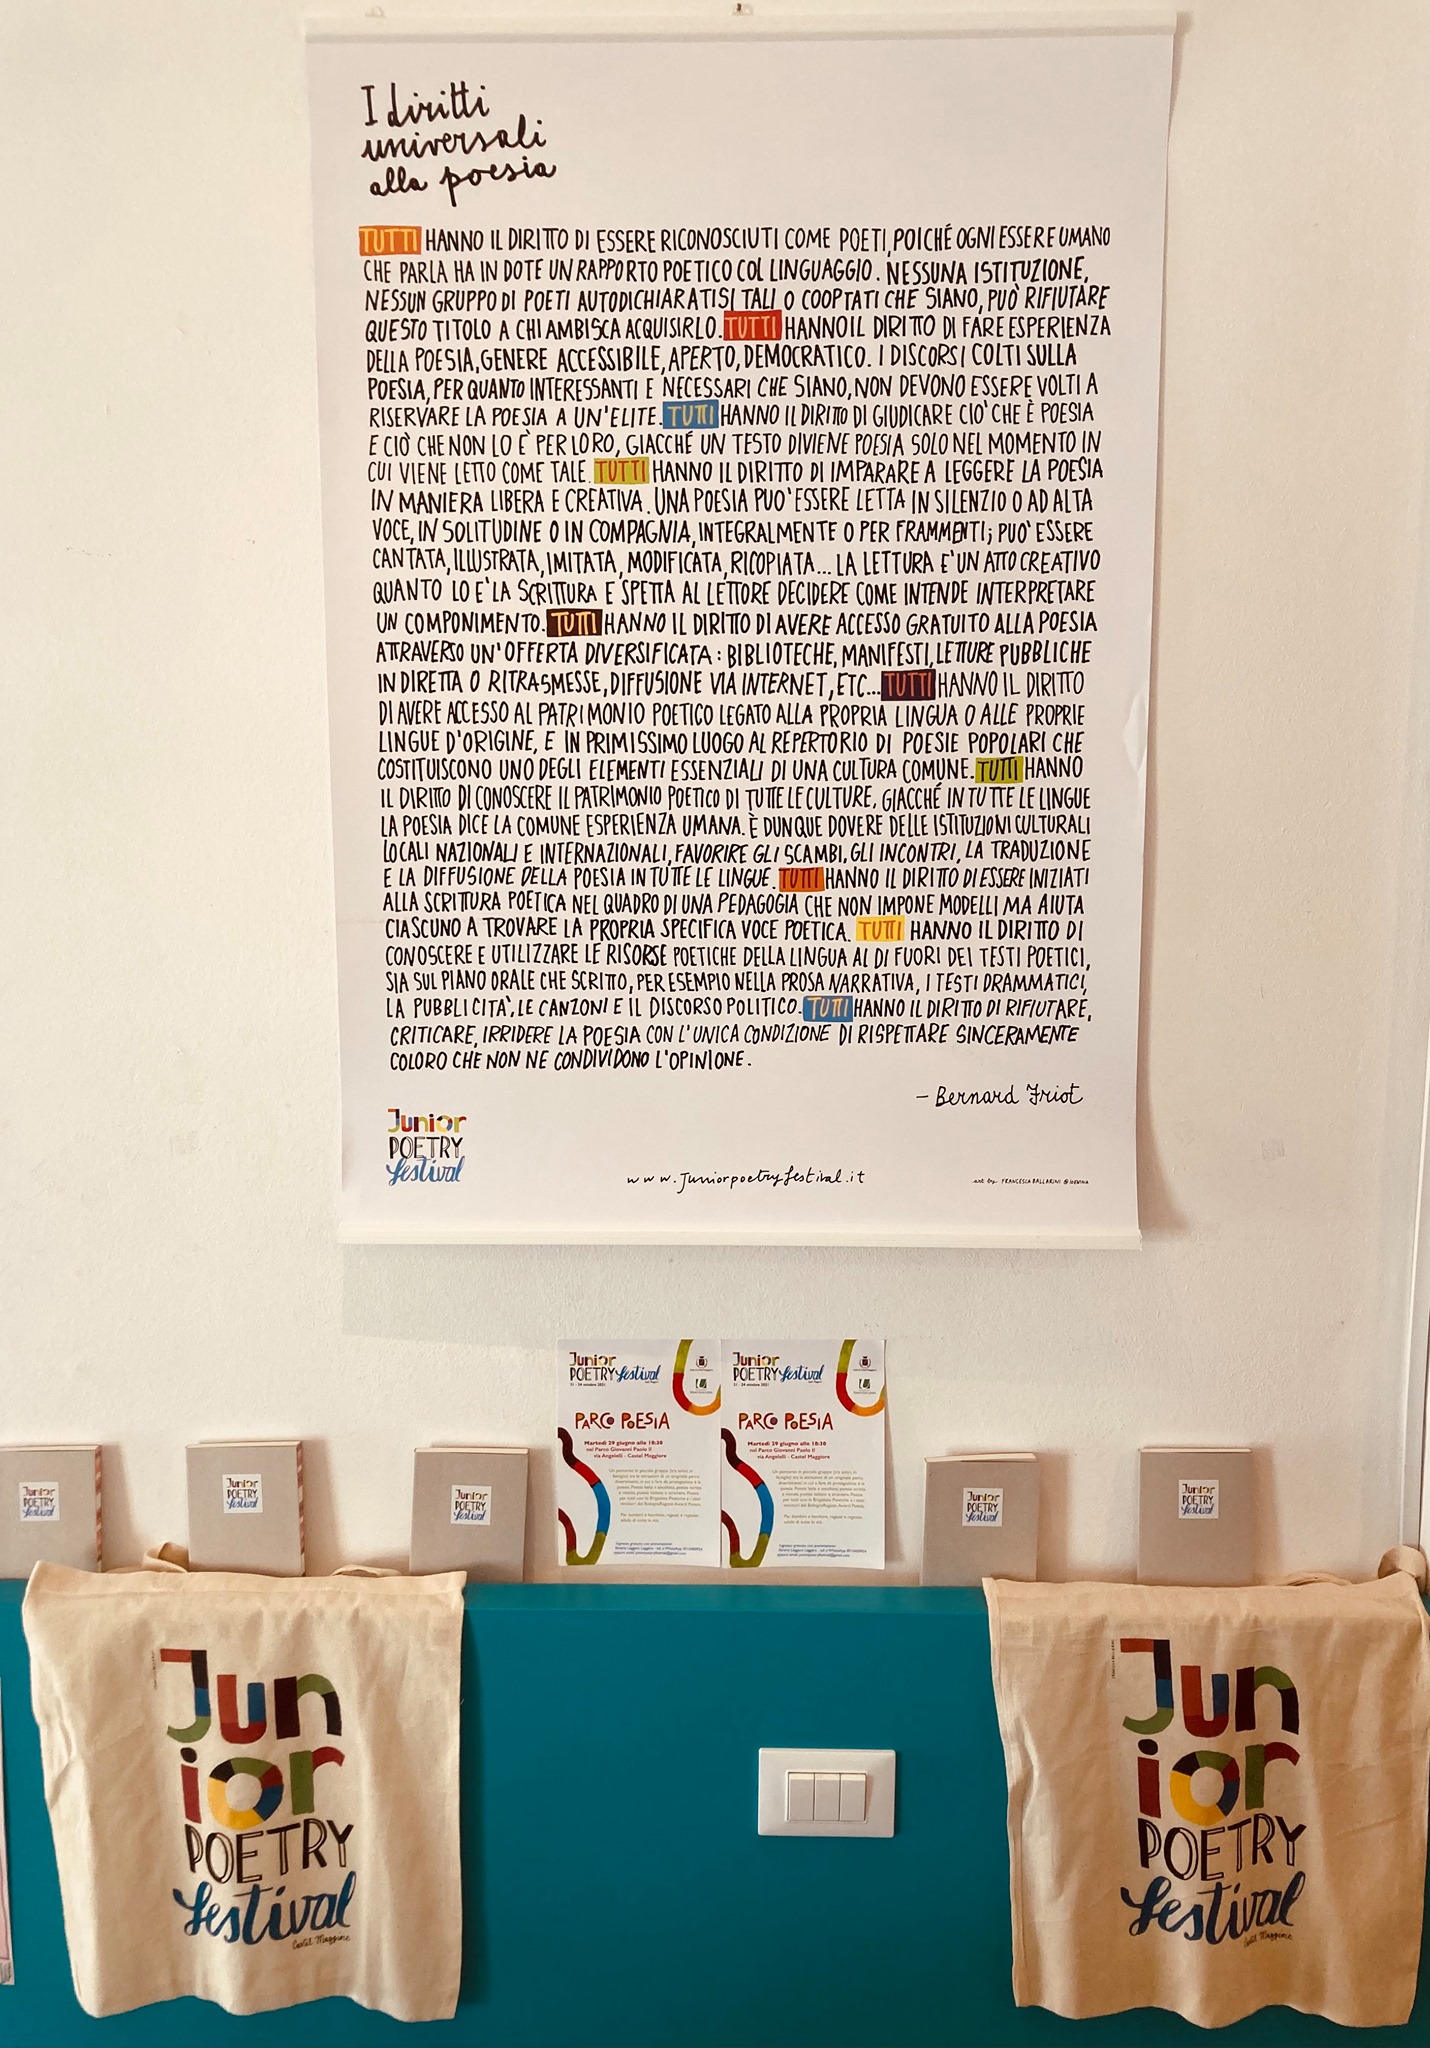 I diritti
universali
alla poesia
TUTTI HANNO IL DIRITTO DI ESSERE RICONOSCIUTI COME POETI, POICHÉ OGNI ESSERE UMANO
CHE PARLA HA IN DOTE UN RAPPORTO POETICO COL LINGUAGGIO. NESSUNA ISTITUZIONE,
NESSUN GRUPPO DI POETI AUTODICHIARATISI TALI O COOPTATI CHE SIANO, PUÒ RIFIUTARE
QUESTO TITOLO A CHI AMBISCA ACQUISIRLO. TUTTI HANNO IL DIRITTO DI FARE ESPERIENZA
DELLA POESIA, GENERE ACCESSIBILE, APERTO, DEMOCRATICO. I DISCORSI COLTI SULLA
POESIA, PER QUANTO INTERESSANTI E NECESSARI CHE SIANO, NON DEVONO ESSERE VOLTI A
RISERVARE LA POESIA A UN'ELITE. TUTTI HANNO IL DIRITTO DI GIUDICARE CIO' CHE È POESIA
E CIÒ CHE NON LO È PER LORO, GIACCHÉ UN TESTO DIVIENE POESIA SOLO NEL MOMENTO IN
CUI VIENE LETTO COME TALE. TUTTI HANNO IL DIRITTO DI IMPARARE A LEGGERE LA POESIA
IN MANIERA LIBERA E CREATIVA. UNA POESIA PUO' ESSERE LETTA IN SILENZIO O AD ALTA
VOCE, IN SOLITUDINE O IN COMPAGNIA, INTEGRALMENTE O PER FRAMMENTI; PUO' ESSERE
CANTATA, ILLUSTRATA, IMITATA, MODIFICATA, RICOPIATA... LA LETTURA E' UN ATTO CREATIVO
QUANTO LO E' LA SCRITTURA E SPETTA AL LETTORE DECIDERE COME INTENDE INTERPRETARE
UN COMPONIMENTO. TUTTI HANNO IL DIRITTO DI AVERE ACCESSO GRATUITO ALLA POESIA
ATTRAVERSO UN'OFFERTA DIVERSIFICATA: BIBLIOTECHE, MANIFESTI, LETTURE PUBBLICHE
IN DIRETTA O RITRASMESSE, DIFFUSIONE VIA INTERNET, ETC... TUTTI HANNO IL DIRITTO
DI AVERE ACCESSO AL PATRIMONIO POETICO LEGATO ALLA PROPRIA LINGUA O ALLE PROPRIE
LINGUE D'ORIGINE, E IN PRIMISSIMO LUOGO AL REPERTORIO DI POESIE POPOLARI CHE
COSTITUISCONO UNO DEGLI ELEMENTI ESSENZIALI DI UNA CULTURA COMUNE. TUTTI HANNO
IL DIRITTO DI CONOSCERE IL PATRIMONIO POETICO DI TUTTE LE CULTURE, GIACCHÉ IN TUTTE LE LINGUE
LA POESIA DICE LA COMUNE ESPERIENZA UMANA. È DUNQUE DOVERE DELLE ISTITUZIONI CULTURALI
LOCALI NAZIONALI E INTERNAZIONALI, FAVORIRE GLI SCAMBI, GLI INCONTRI, LA TRADUZIONE
E LA DIFFUSIONE DELLA POESIA IN TUTTE LE LINGUE. TUTTI HANNO IL DIRITTO DI ESSERE INIZIATI
ALLA SCRITTURA POETICA NEL QUADRO DI UNA PEDAGOGIA CHE NON IMPONE MODELLI MA AIUTA
CIASCUNO A TROVARE LA PROPRIA SPECIFICA VOCE POETICA. TUTTI HANNO IL DIRITTO DI
CONOSCERE E UTILIZZARE LE RISORSE POETICHE DELLA LINGUA AL DI FUORI DEI TESTI POETICI,
SIA SUL PIANO ORALE CHE SCRITTO, PER ESEMPIO NELLA PROSA NARRATIVA, I TESTI DRAMMATICI,
LA PUBBLICITA', LE CANZONI E IL DISCORSO POLITICO. TUTTI HANNO IL DIRITTO DI RIFIUTARE,
CRITICARE, IRRIDERE LA POESIA CON L'UNICA CONDIZIONE DI RISPETTARE SINCERAMENTE
COLORO CHE NON NE CONDIVIDONO L'OPINIONE.
– Bernard Friot
Junior
POETRY
festival
www.juniorpoetryfestival.it
art by FRANCESCA BALLARINI
Junior
POETRY festival
21 - 24 ottobre 2021
PARCO POESIA
Martedì 29 giugno alle 18:30
nel Parco Giovanni Paolo II
via Angelelli - Castel Maggiore
Junior
POETRY festival
21 - 24 ottobre 2021
PARCO POESIA
Martedì 29 giugno alle 18:30
nel Parco Giovanni Paolo II
via Angelelli - Castel Maggiore
Junior
POETRY
festival
Junior
POETRY
festival
Junior
POETRY
festival
Junior
POETRY
festival
Junior
POETRY
festival
Jun
ior
POETRY
festival
Castel Maggiore
Jun
ior
POETRY
festival
Castel Maggiore